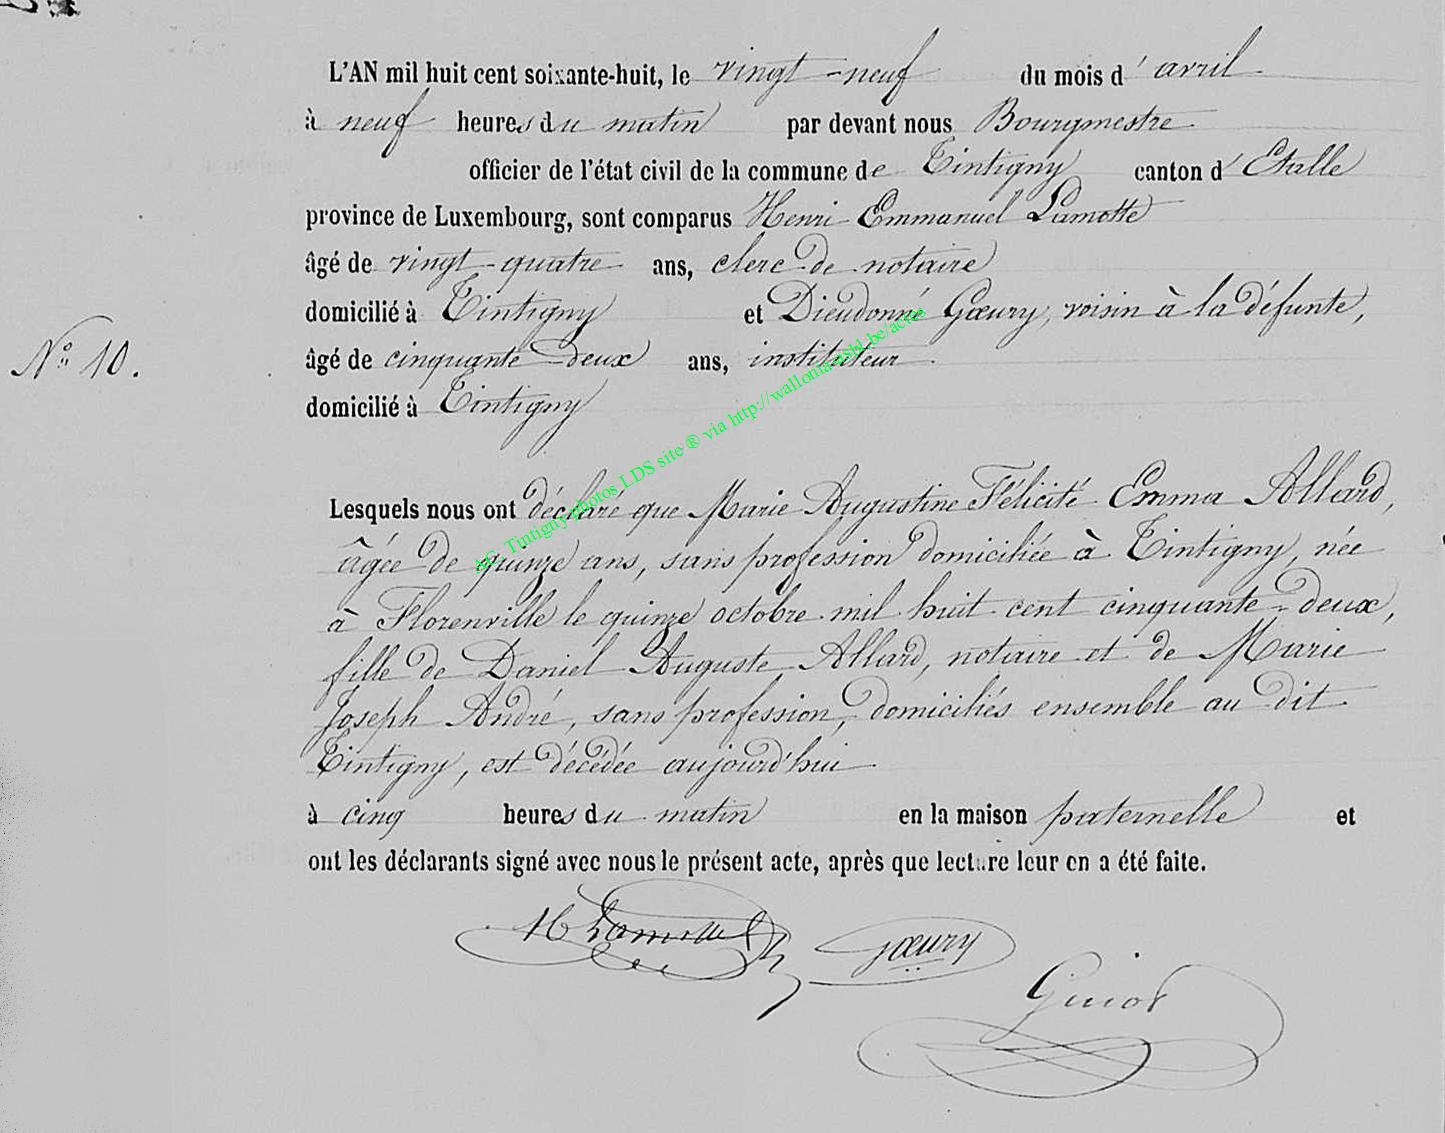 L'AN mil huit cent soixante-huit, le vingt-neuf du mois d'avril
à neuf heures du matin par devant nous Bourgmestre
officier de l'état civil de la commune de Tintigny canton d'Etalle
province de Luxembourg, sont comparus Henri Emmanuel Lamotte
âgé de vingt-quatre ans, clerc de notaire
domicilié à Tintigny et Dieudonné Gœury, voisin à la défunte,
N° 10.
âgé de cinquante-deux ans, instituteur
domicilié à Tintigny
Lesquels nous ont déclaré que Marie Augustine Félicité Emma Allard,
âgée de quinze ans, sans profession domiciliée à Tintigny, née
à Florenville le quinze octobre mil huit cent cinquante-deux,
fille de Daniel Auguste Allard, notaire et de Marie
Joseph André, sans profession, domiciliés ensemble au dit
Tintigny, est décédée aujourd'hui
à cinq heures du matin en la maison paternelle et
ont les déclarants signé avec nous le présent acte, après que lecture leur en a été faite.
H Lamotte Gœury
Guiot
Tintigny photos LDS site ® via http://wallonia-asbl.be/actes